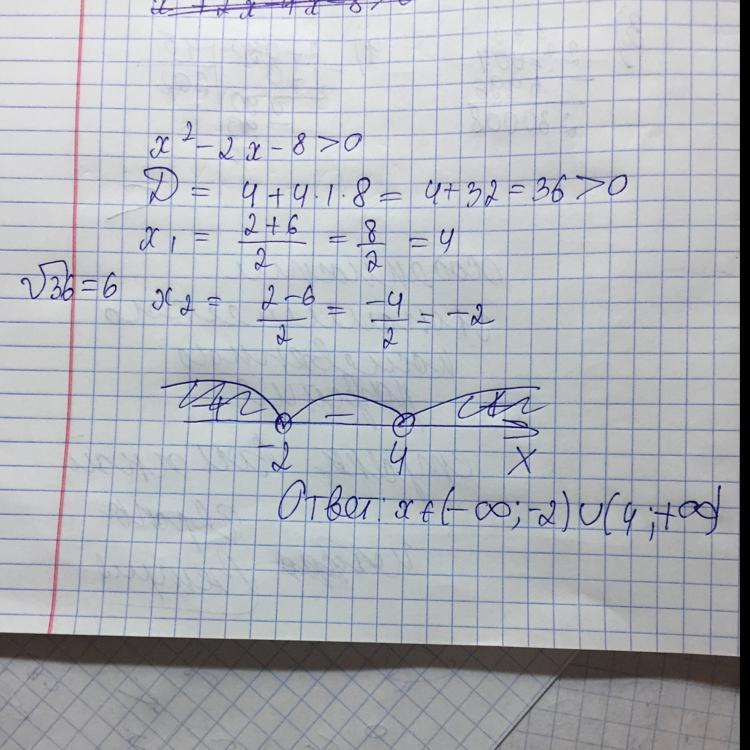 x² - 2x - 8 > 0
D = 4 + 4·1·8 = 4 + 32 = 36 > 0
x₁ = (2+6)/2 = 8/2 = 4
√36 = 6
x₂ = (2-6)/2 = -4/2 = -2
+ - +
-2 4 x
Ответ: x ∈ (-∞; -2) ∪ (4; +∞)